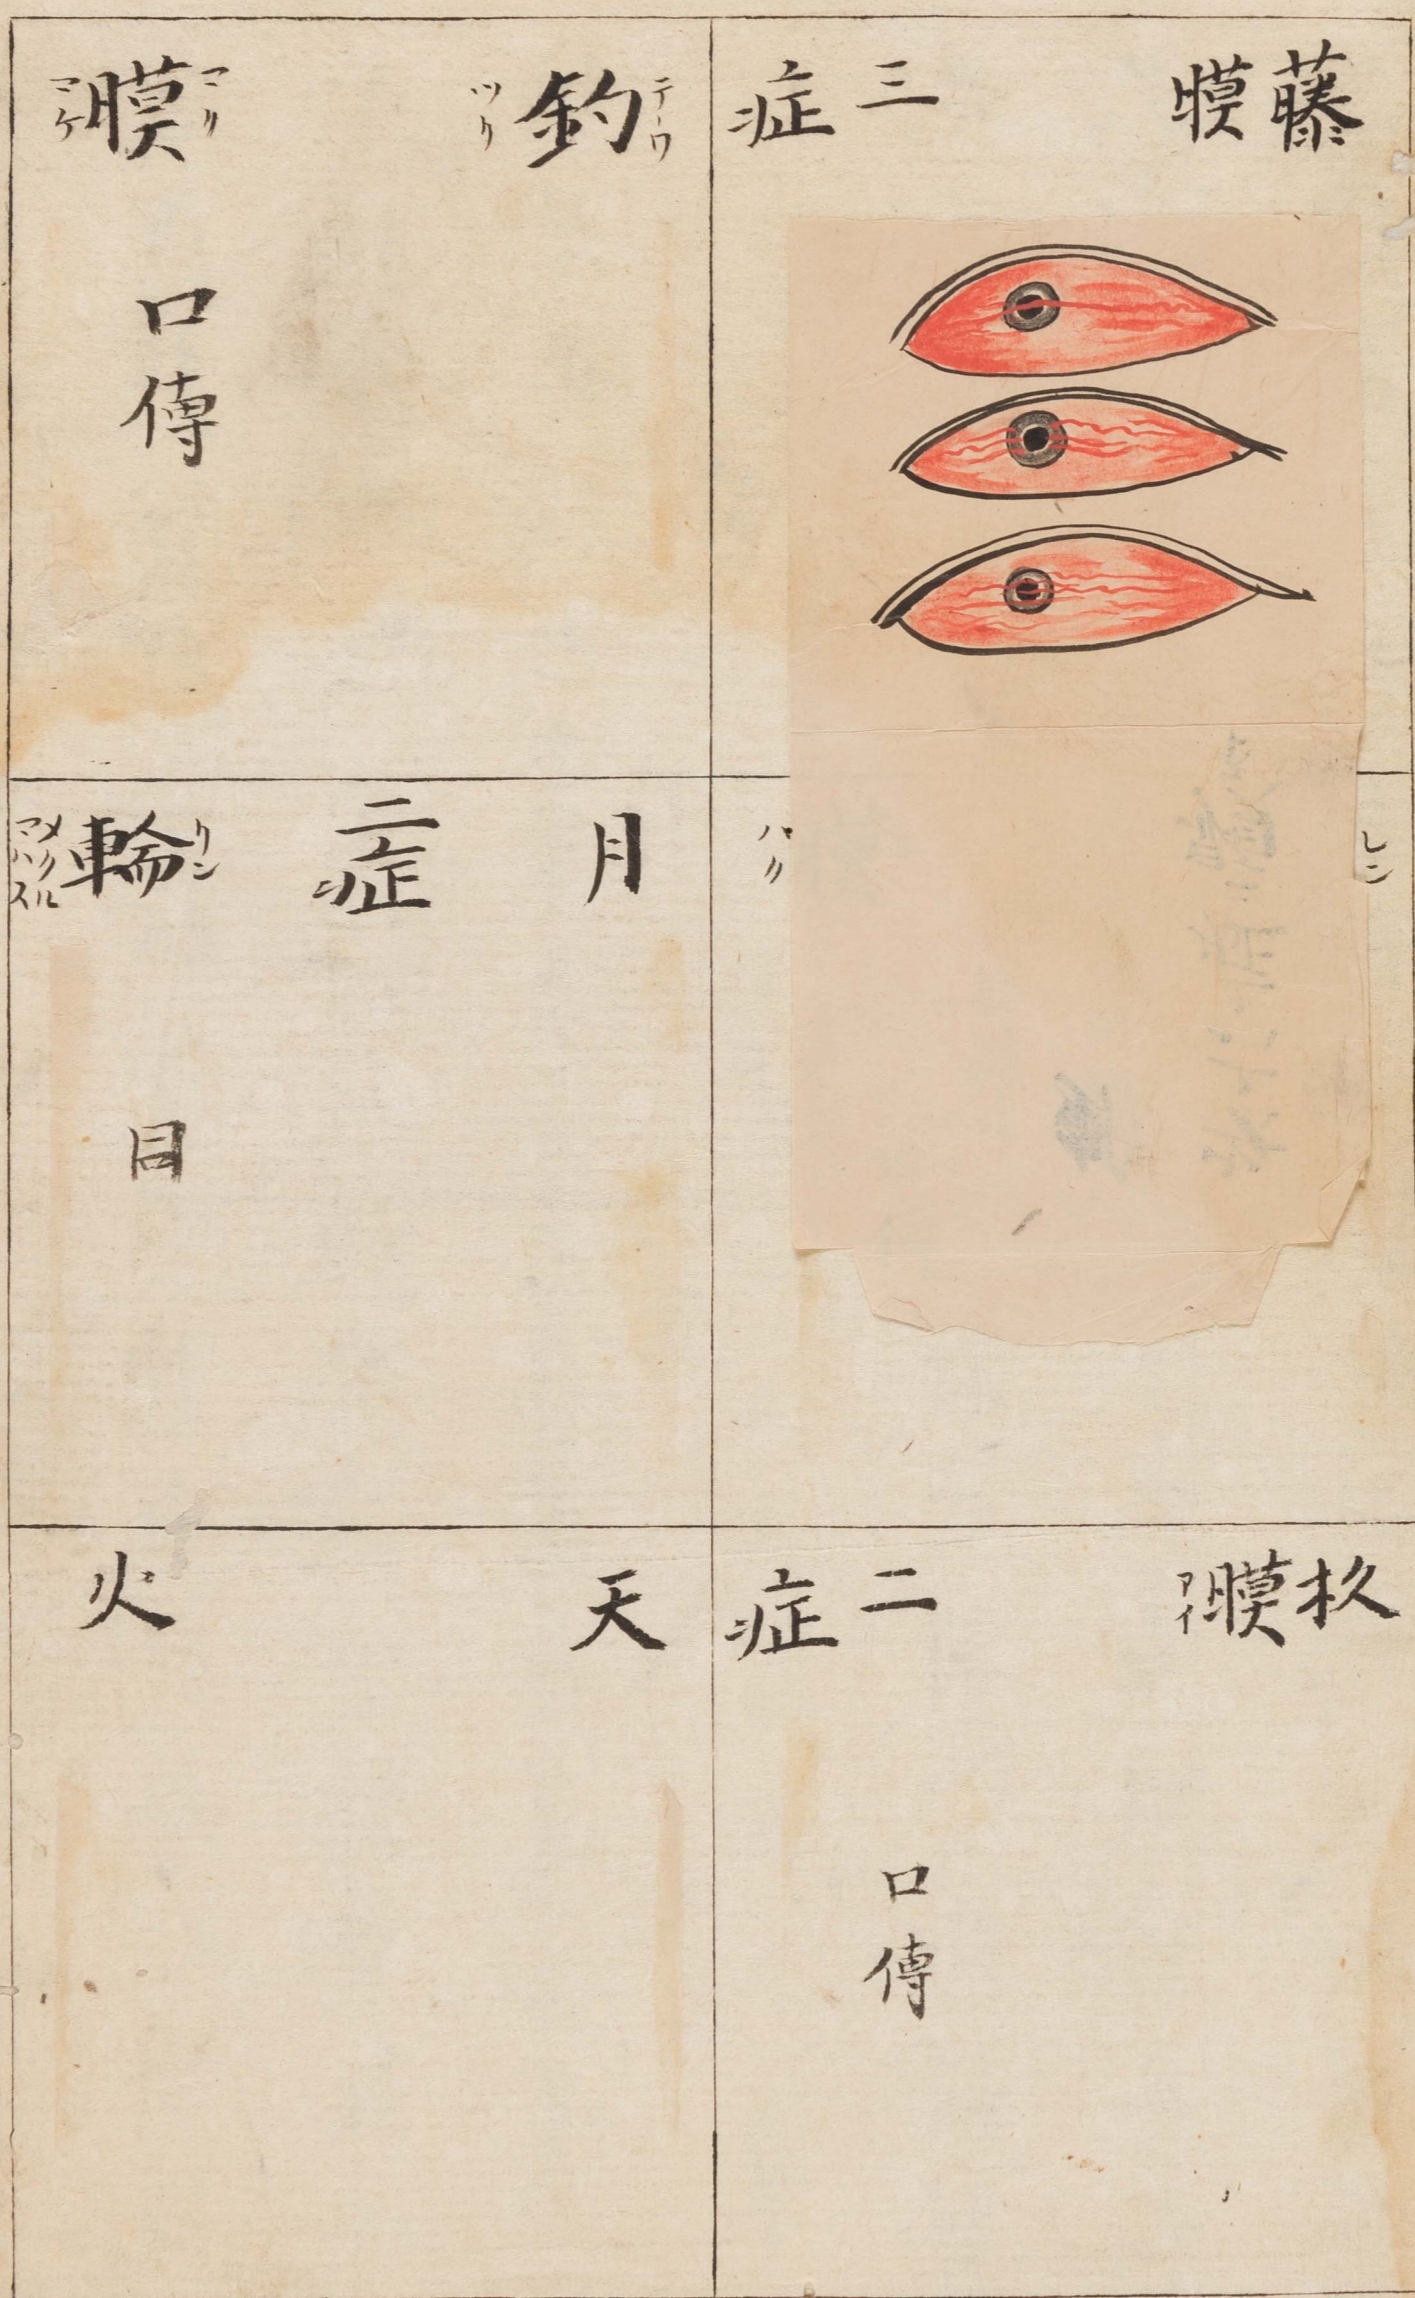 藤膜 三症
釣 テーワ ツリ
膜 マク マケ
口傳
レン
ハリ
月 二症
輪 リン メクル マハス
目
杦膜 アイ 二症
口傳
天 火